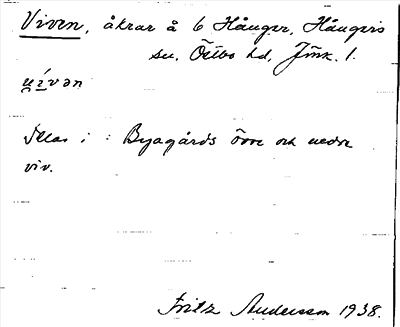 Viven, åkrar å 6 Hånger, Hångers
sn, Östbo hd, Jönk. l.
vívən
Ellas i : Byagårds övre och nedre
viv.
Fritz Andersson 1938.